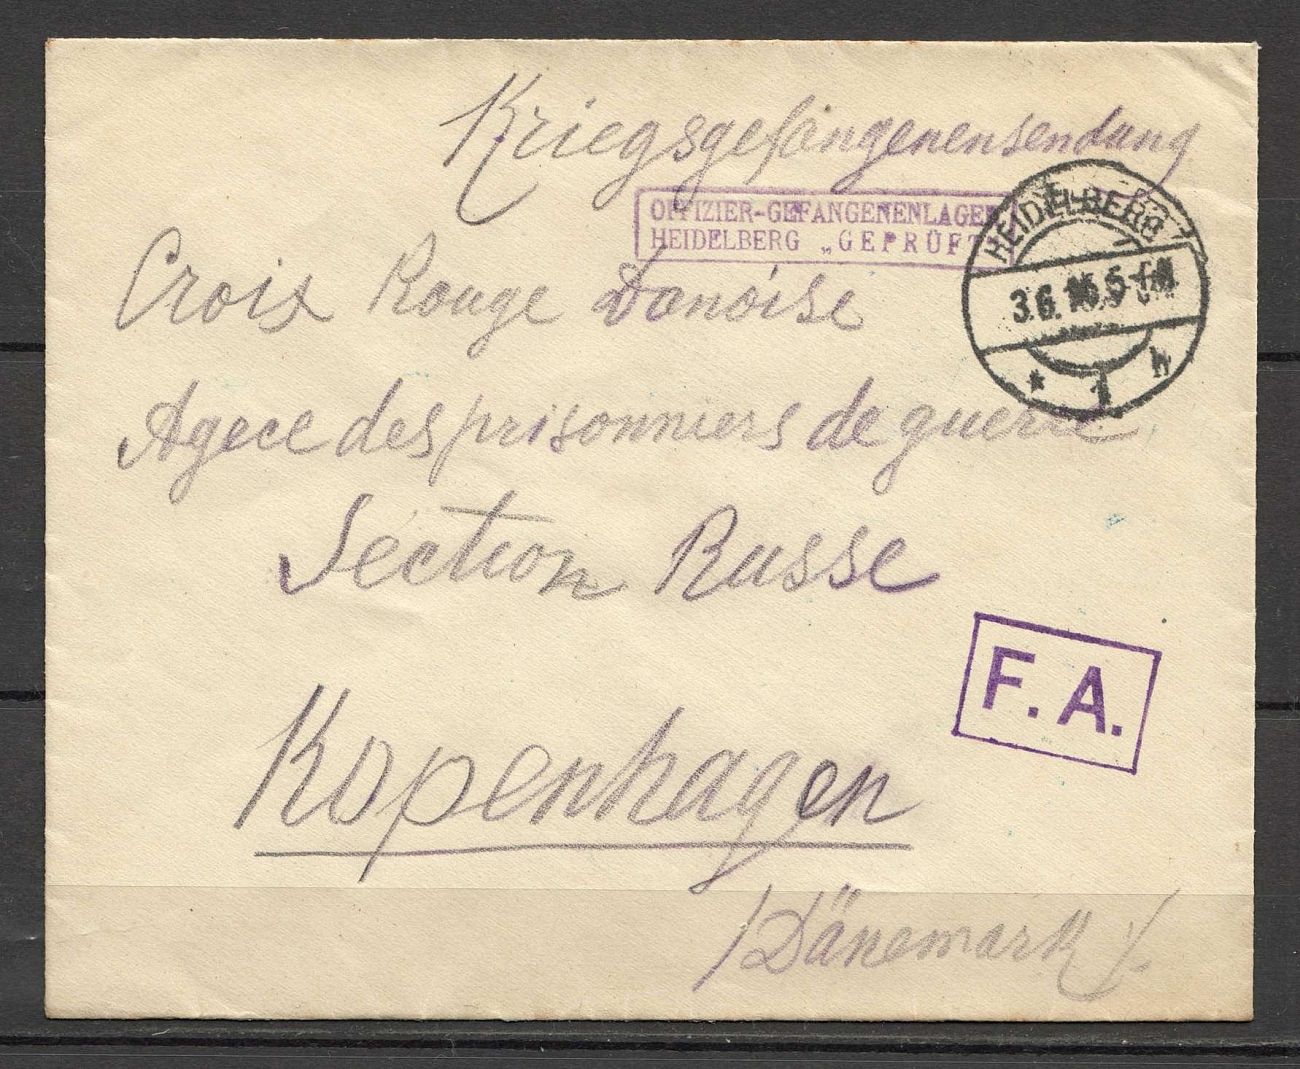 Kriegsgefangenensendung
OFFIZIER-GEFANGENENLAGER
HEIDELBERG „GEPRÜFT
HEIDELBERG
3.6.16.5-6N.
* 1 h
Croix Rouge Danoise
Agece des prisonniers de guerre
Section Russe
F. A.
Kopenhagen
/Dänemark/.